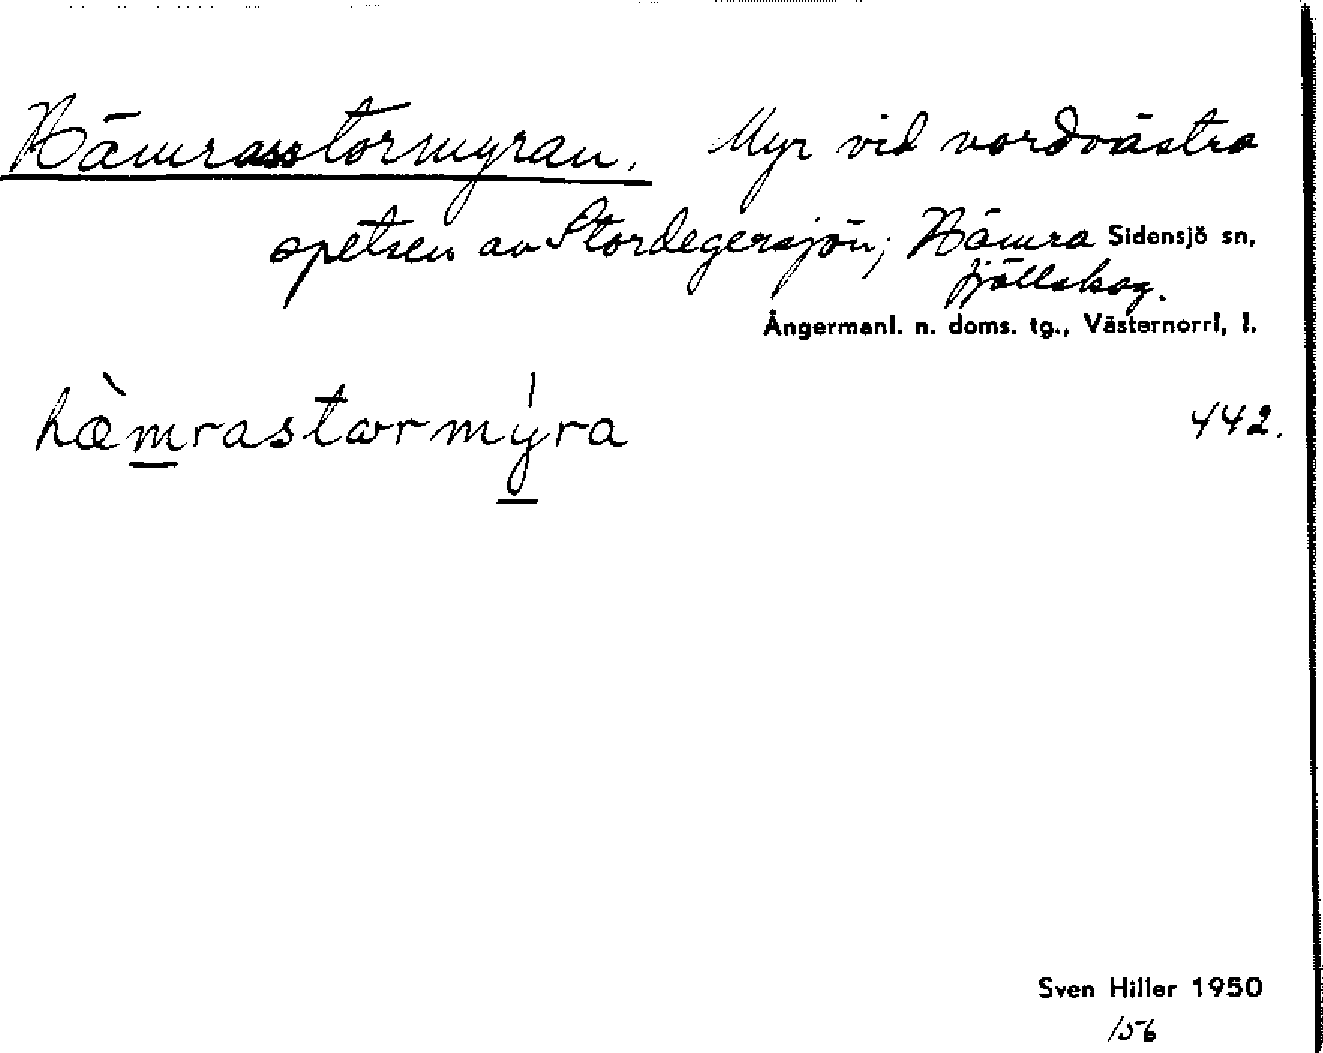 Hämrasstormyran. Myr vid nordvästra
spetsen av Stordegersjön; Hämra Sidensjö sn,
fjällskog.
Ångermanl. n. doms. tg., Västernorrl. l.
hæ̀mrastωrmýra 442.
Sven Hiller 1950
156